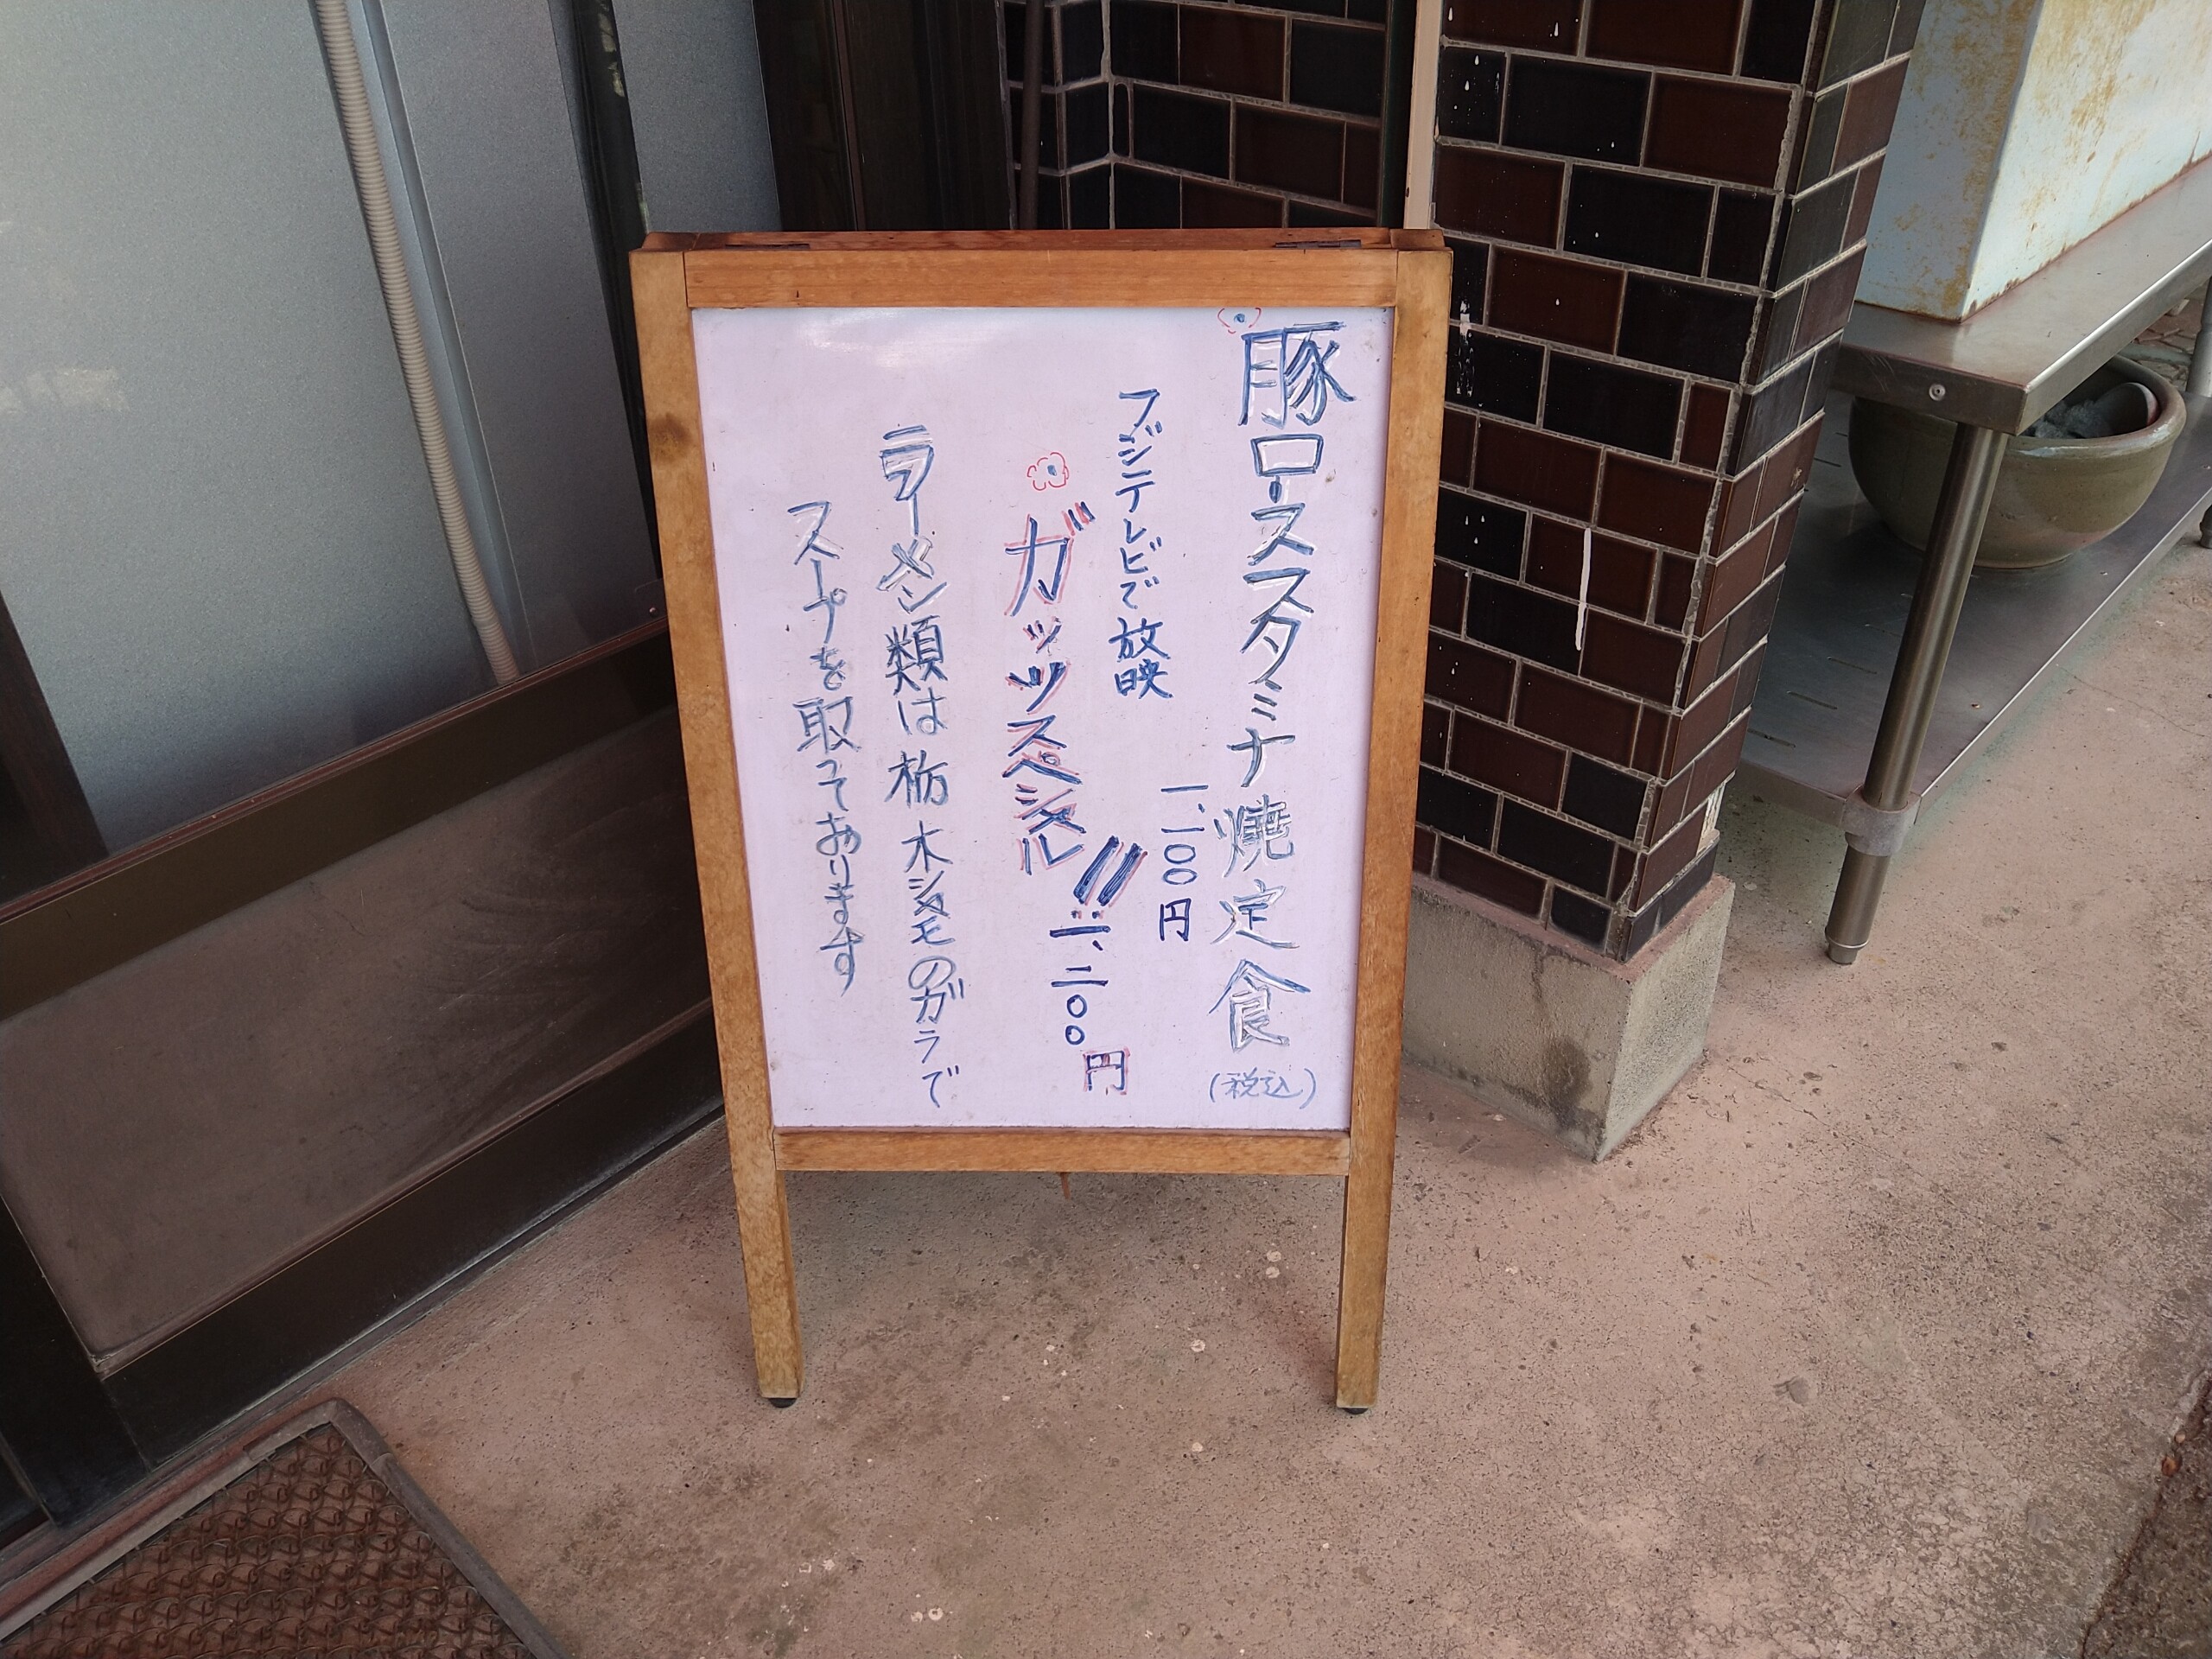 豚ローススタミナ焼定食(税込)
一、一〇〇円
フジテレビで放映
ガッツスペシャル!!
二〇〇円
ラーメン類は栃木シャモのガラで
スープを取ってあります